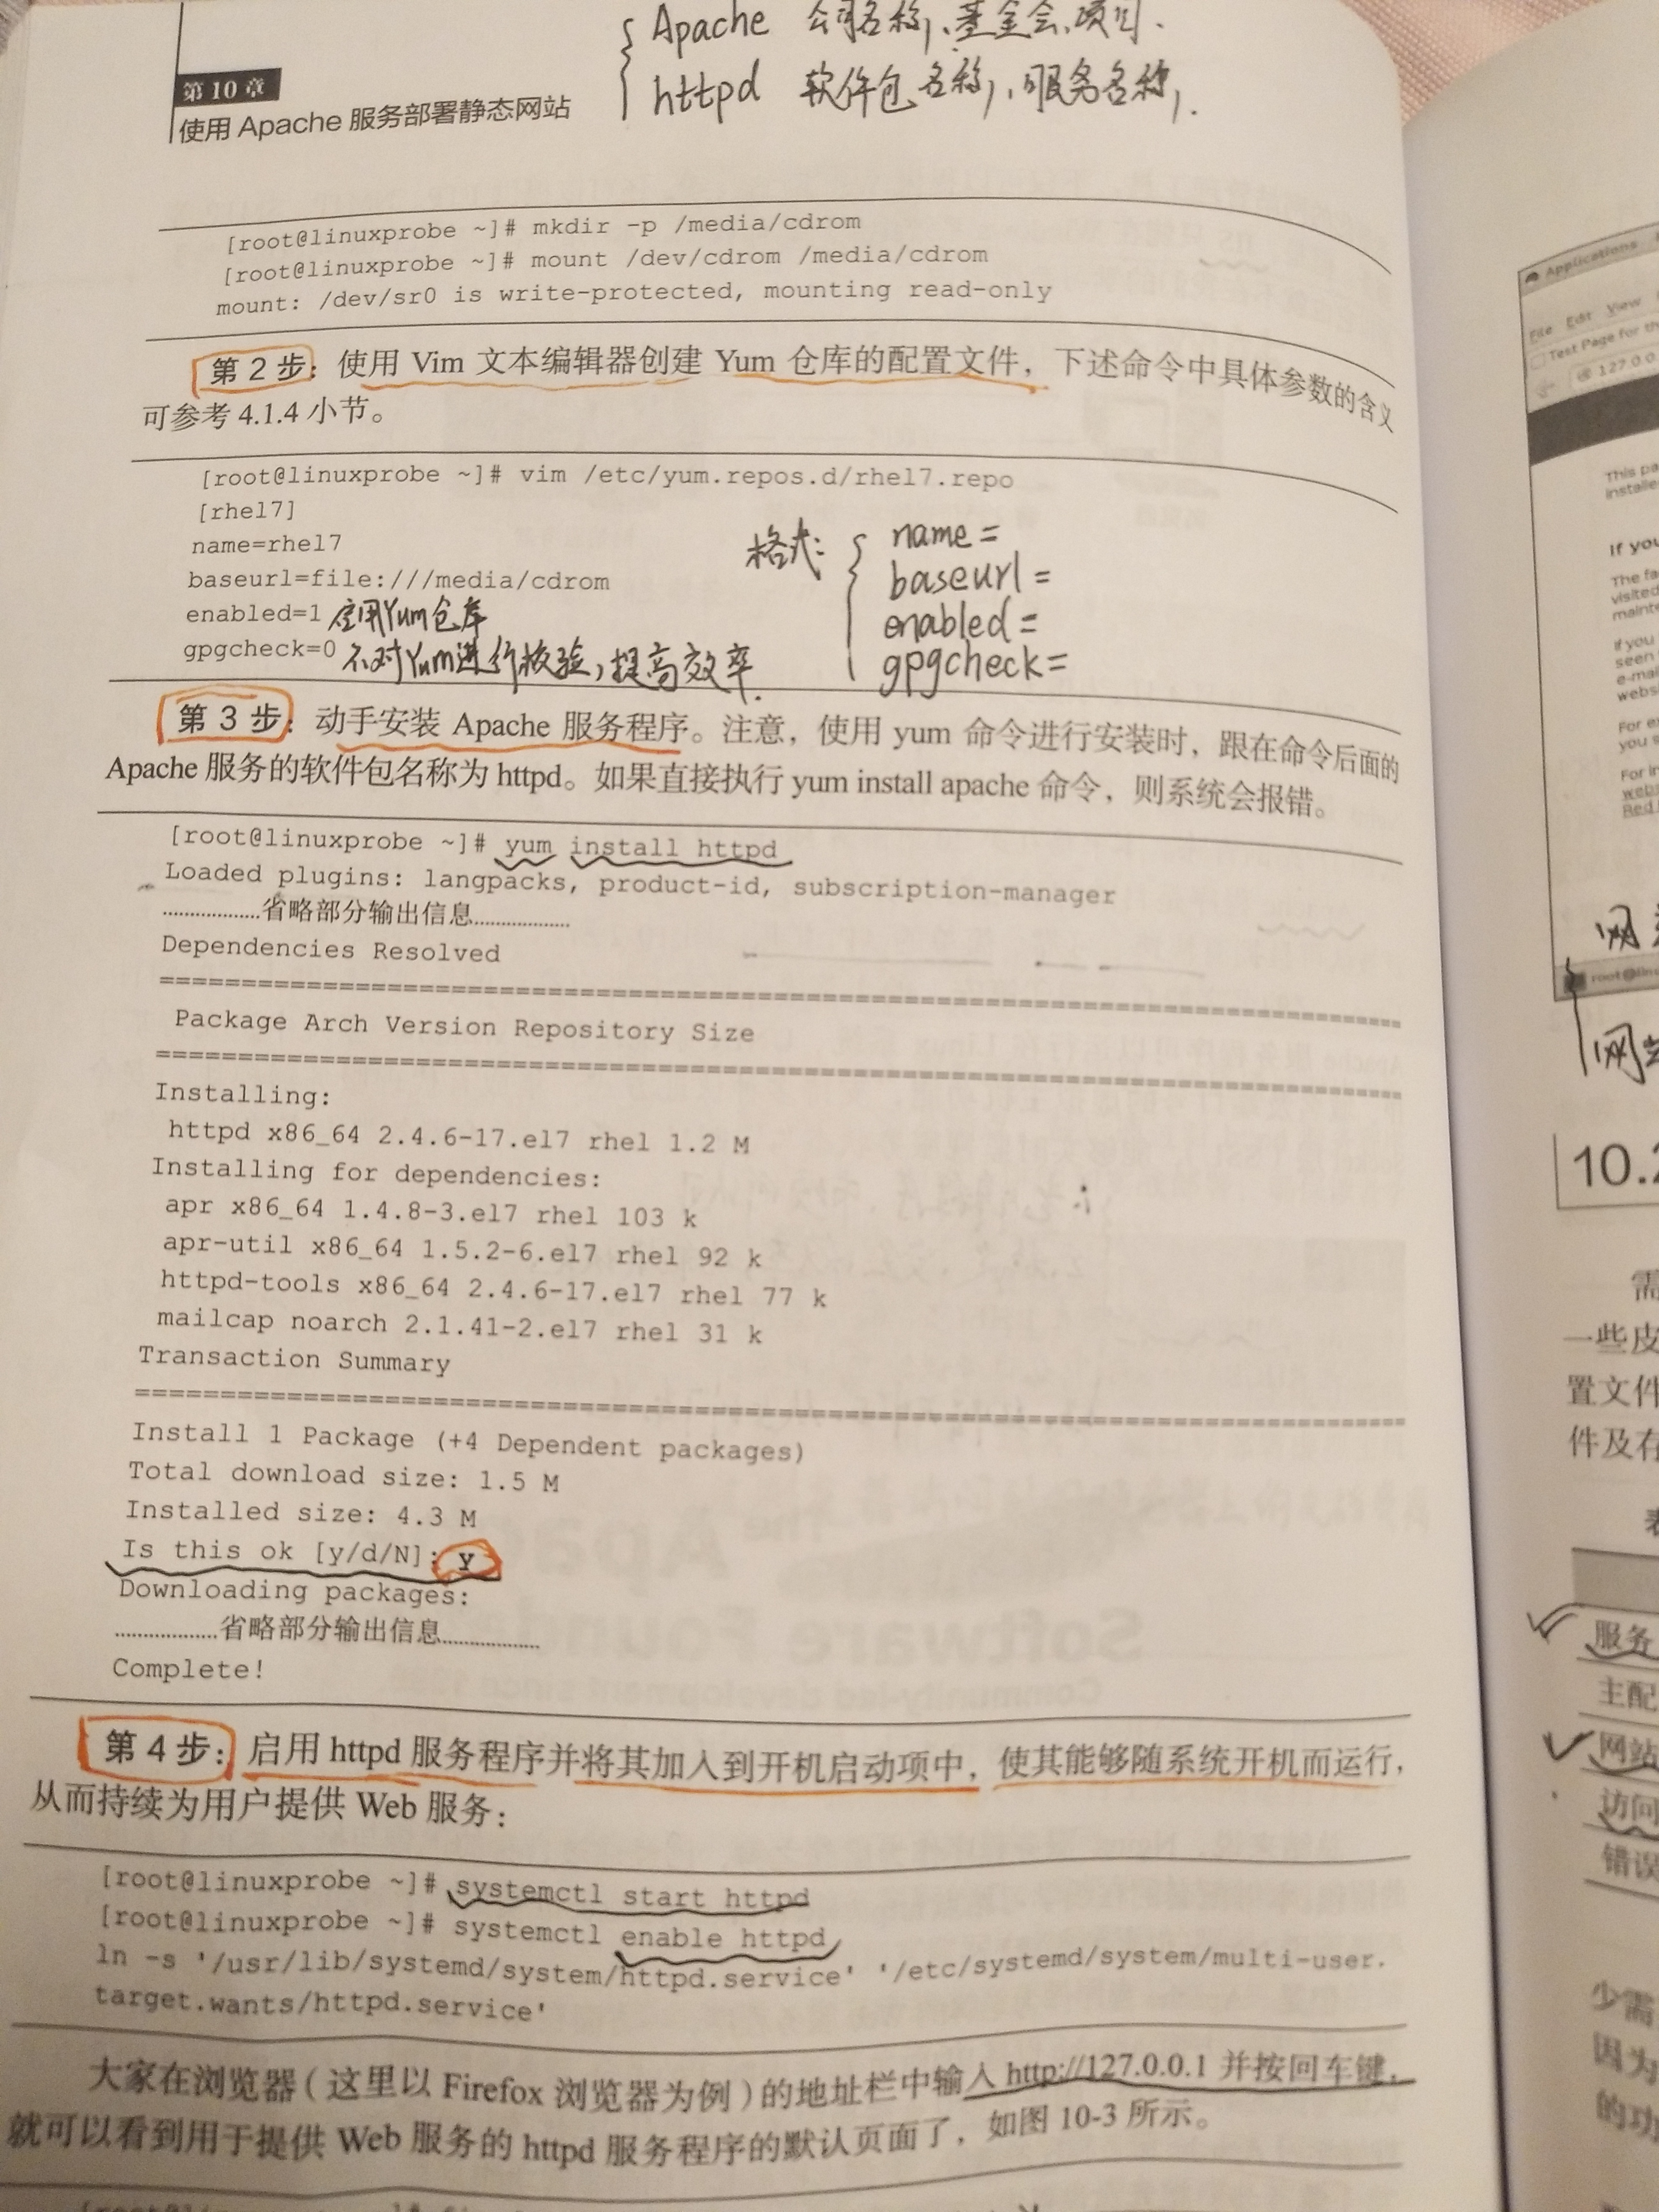 Apache 公司名称、基金会、项目.
httpd 软件包名称、服务名称.
第 10 章
使用 Apache 服务部署静态网站
[root@linuxprobe ~]# mkdir -p /media/cdrom
[root@linuxprobe ~]# mount /dev/cdrom /media/cdrom
mount: /dev/sr0 is write-protected, mounting read-only
第 2 步：使用 Vim 文本编辑器创建 Yum 仓库的配置文件，下述命令中具体参数的含义
可参考 4.1.4 小节。
[root@linuxprobe ~]# vim /etc/yum.repos.d/rhel7.repo
[rhel7]
name=rhel7
baseurl=file:///media/cdrom
enabled=1 启用Yum仓库
gpgcheck=0 不对Yum进行校验，提高效率.
格式:
name=
baseurl=
enabled=
gpgcheck=
第 3 步：动手安装 Apache 服务程序。注意，使用 yum 命令进行安装时，跟在命令后面的
Apache 服务的软件包名称为 httpd。如果直接执行 yum install apache 命令，则系统会报错。
[root@linuxprobe ~]# yum install httpd
Loaded plugins: langpacks, product-id, subscription-manager
………………省略部分输出信息………………
Dependencies Resolved
================================================================================
Package Arch Version Repository Size
================================================================================
Installing:
httpd x86_64 2.4.6-17.el7 rhel 1.2 M
Installing for dependencies:
apr x86_64 1.4.8-3.el7 rhel 103 k
apr-util x86_64 1.5.2-6.el7 rhel 92 k
httpd-tools x86_64 2.4.6-17.el7 rhel 77 k
mailcap noarch 2.1.41-2.el7 rhel 31 k
Transaction Summary
================================================================================
Install 1 Package (+4 Dependent packages)
Total download size: 1.5 M
Installed size: 4.3 M
Is this ok [y/d/N]: y
Downloading packages:
………………省略部分输出信息………………
Complete!
第 4 步：启用 httpd 服务程序并将其加入到开机启动项中，使其能够随系统开机而运行，
从而持续为用户提供 Web 服务：
[root@linuxprobe ~]# systemctl start httpd
[root@linuxprobe ~]# systemctl enable httpd
ln -s '/usr/lib/systemd/system/httpd.service' '/etc/systemd/system/multi-user.
target.wants/httpd.service'
大家在浏览器（这里以 Firefox 浏览器为例）的地址栏中输入 http://127.0.0.1 并按回车键，
就可以看到用于提供 Web 服务的 httpd 服务程序的默认页面了，如图 10-3 所示。
Applications
File Edit View
Test Page for
127.0.0.
This
If you
The
visited
If you
seen
For
you
For
Red
网
网站
10.2
需
一些皮
置文件
件及存
服务
主配
网站
访问
错误
少需
因为
的功